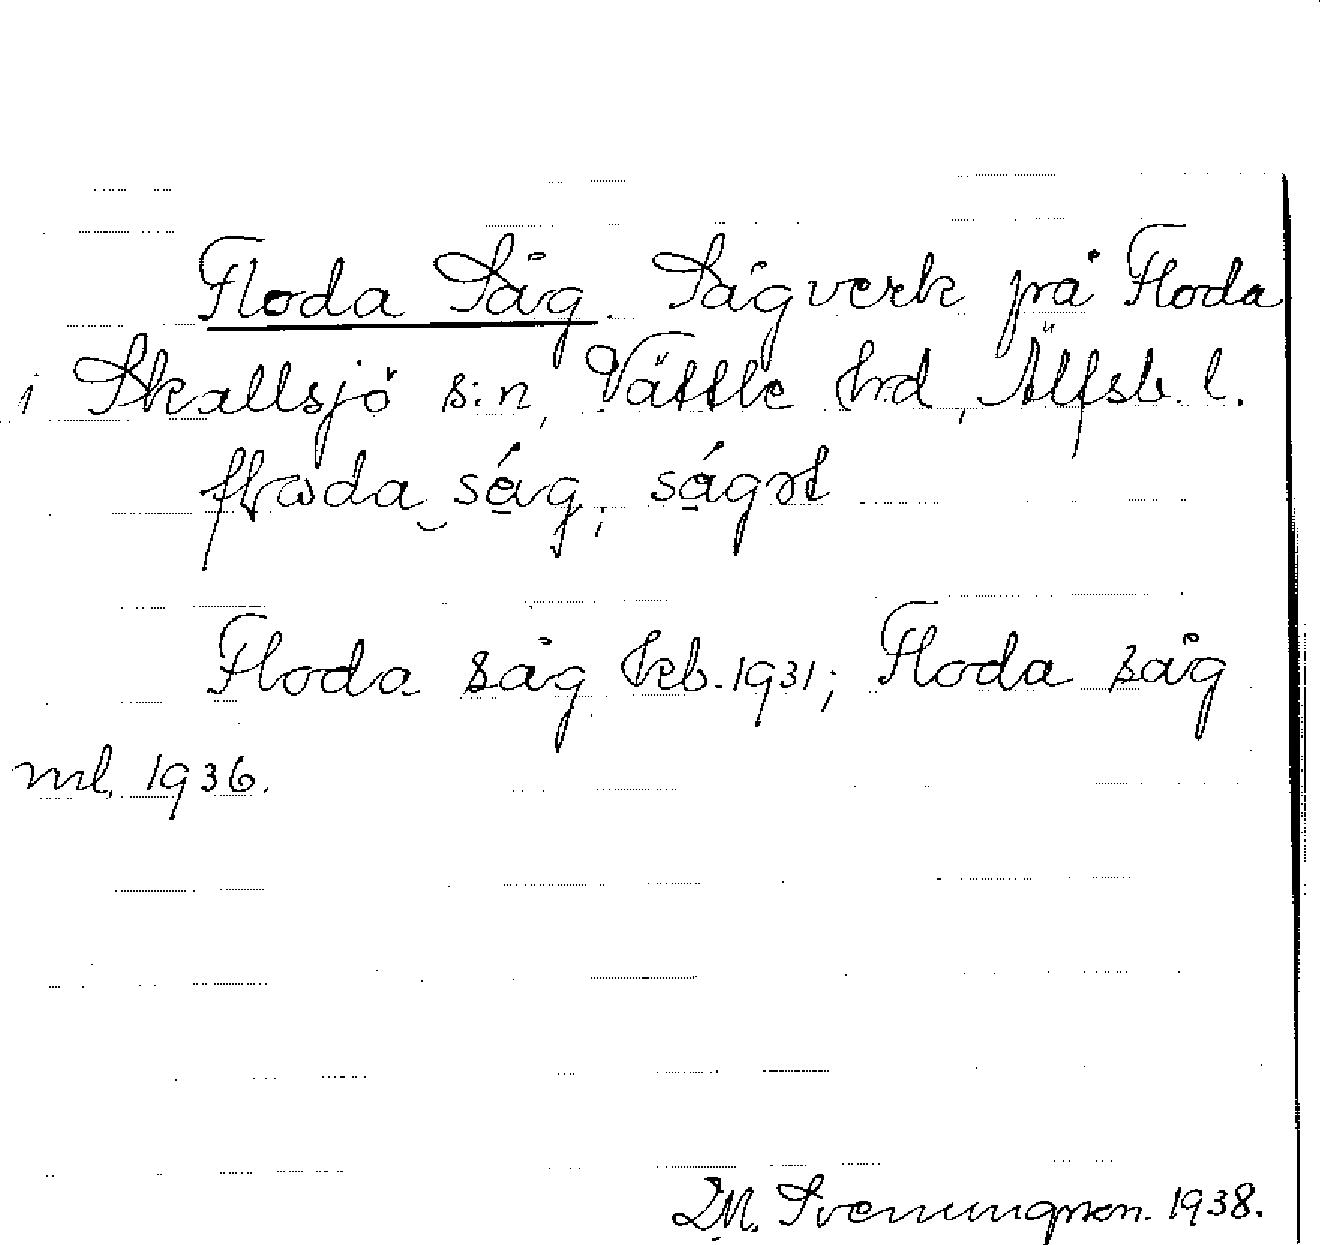 Floda Såg. Sågverk på Floda
i Skallsjö s:n, Vättle hrd, Älfsb. l.
såg,
Floda såg keb. 1931; Floda såg
ml. 1936.
Svenungsson. 1938.